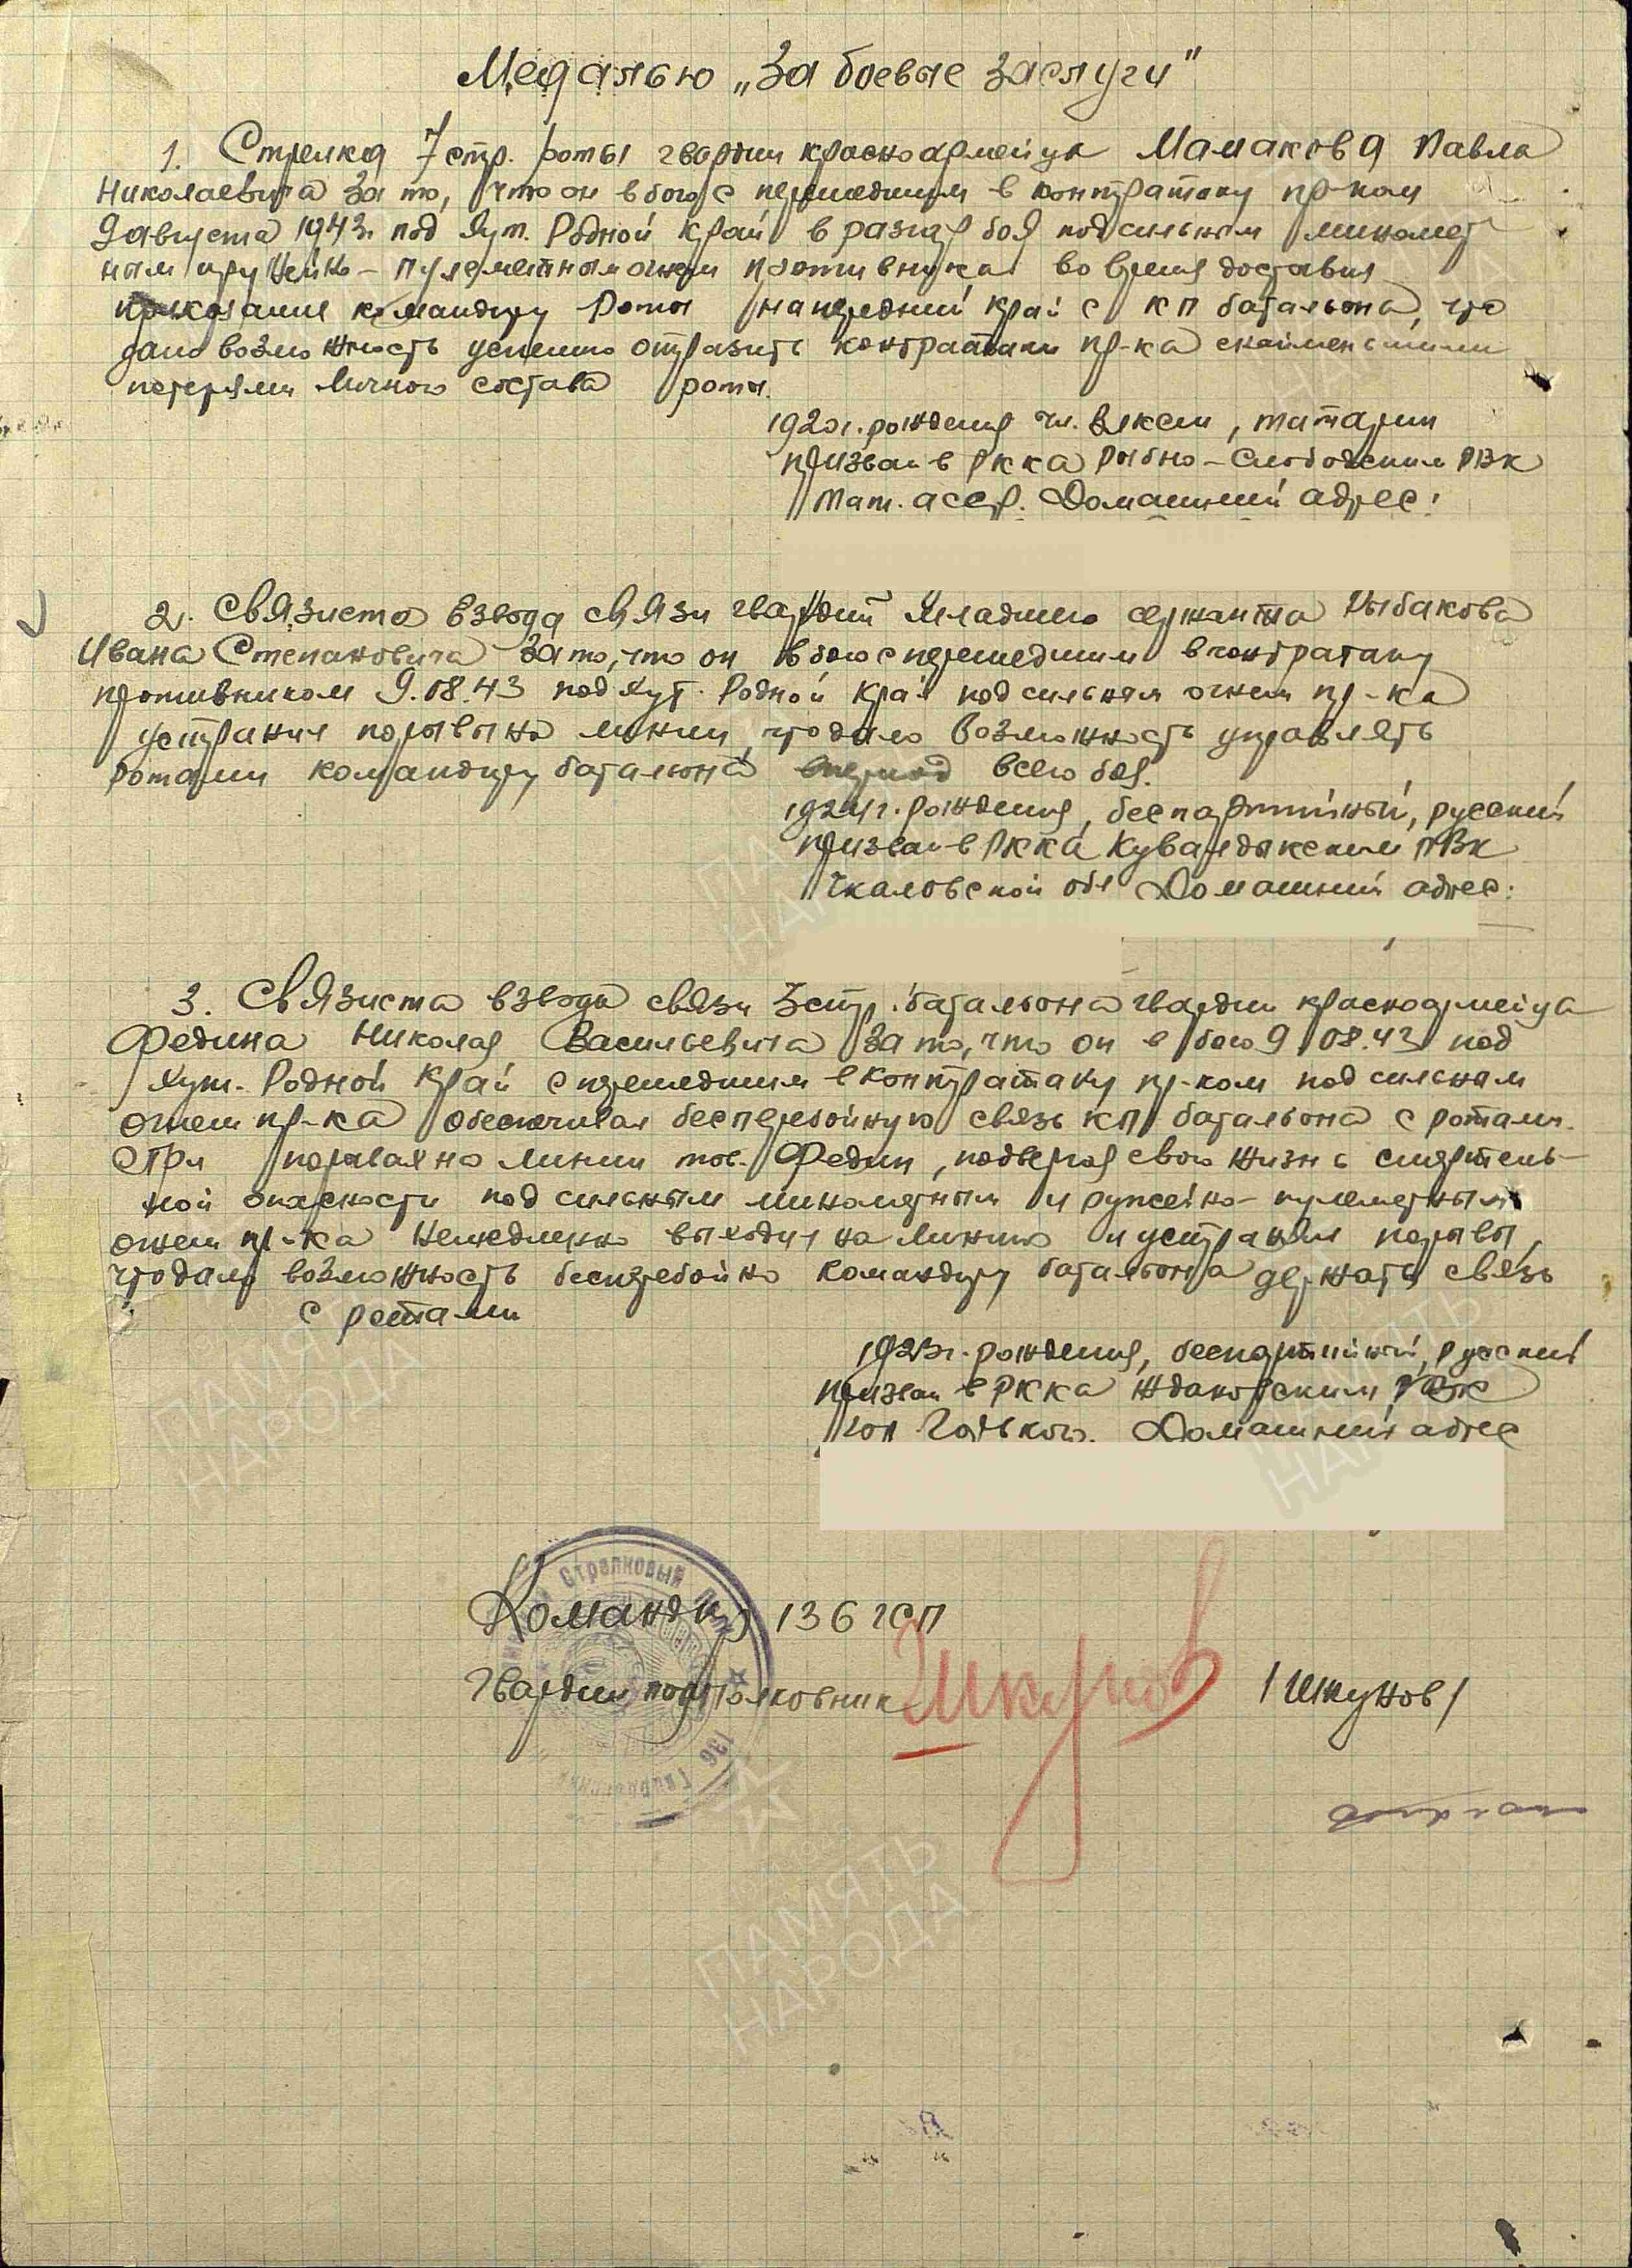 Медалью „За боевые заслуги"
1. Стрелка 7 стр. роты гвардии красноармейца Мамакова Павла
Николаевича За то, что он в бою с перешедшим в контратаку пр-ком
9 августа 1943г. под Хут. Родной Край в разгар боя под сильным миномет
ным и ружейно-пулеметным огнем противника во время доставил
приказание командиру Роты на передний край с КП батальона, что
дало возможность успешно отразить контратаки пр-ка с наименьшими
потерями личного состава роты.
рождения чл. ВЛКСМ, татарин
призван в РККА Рыбно-Слободским РВК
Тат. АССР. Домашний адрес:
2. Связиста взвода связи гвардии младшего сержанта Рыбакова
Ивана Степановича За то, что он в бою с перешедшим в контратаку
противником 9.08.43 под Хут. Родной Край под сильным огнем пр-ка
устранил порывы на линии, что дало возможность управлять
ротами командиру батальона в период всего боя.
1924г. рождения, беспартийный, русский
призван в РККА Кувандыкским РВК
Чкаловской обл Домашний адрес:
3. Связиста взвода связи 3 стр. батальона гвардии красноармейца
Федина Николая Васильевича За то, что он в бою 9.08.43 под
Хут. Родной Край с перешедшим в контратаку пр-ком под сильным
огнем пр-ка обеспечивал бесперебойную связь КП батальона с ротами.
При порывах на линии тов. Федин, подвергая свою жизнь смертель-
ной опасности под сильным минометным и ружейно-пулеметным
огнем пр-ка немедленно выходил на линию и устранял порывы,
что дало возможность бесперебойно командиру батальона держать связь
с ротами
рождения, беспартийный, русский
призван в РККА Ждановским РВК
Горького. Домашний адрес
Командир 136 гсп
Гвардии подполковник Шкунов /Шкунов/
Стрелковый Полк
136 Гвардейский
ПАМЯТЬ
НАРОДА